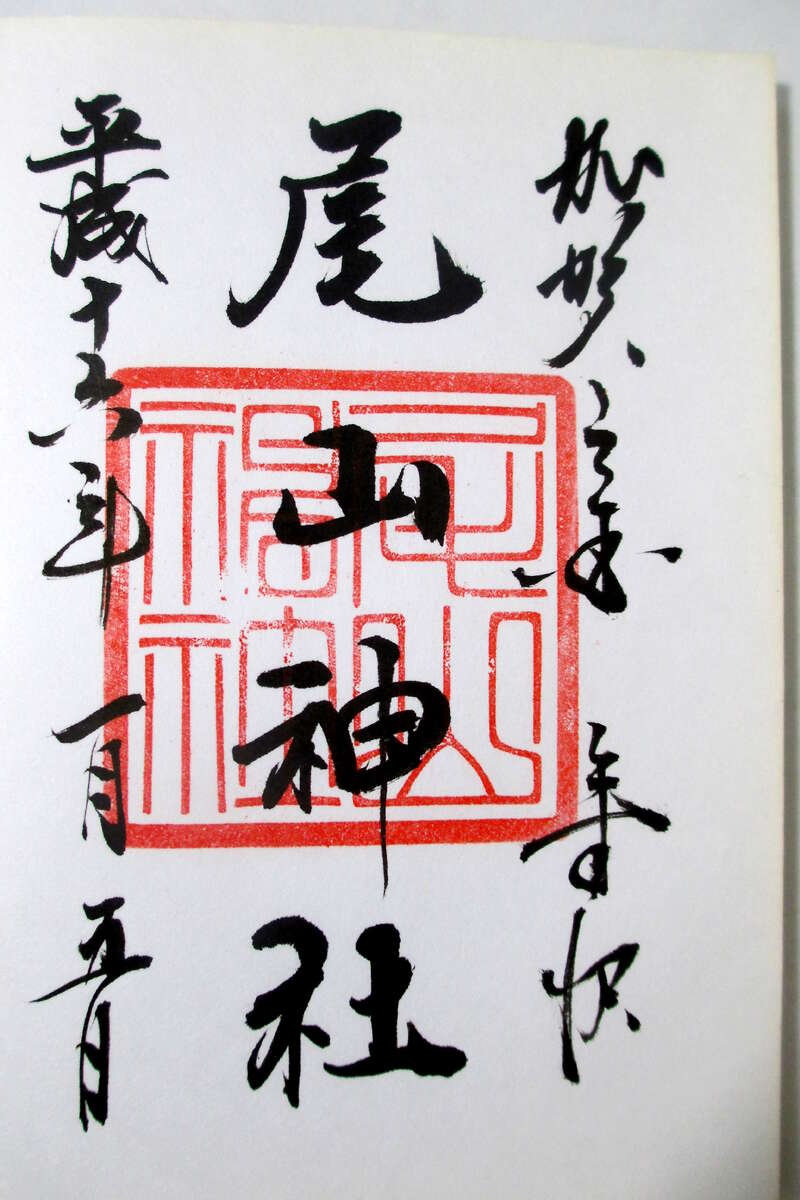 加賀之 奉拝
尾山神社
平成十六年一月五日
尾山
神社